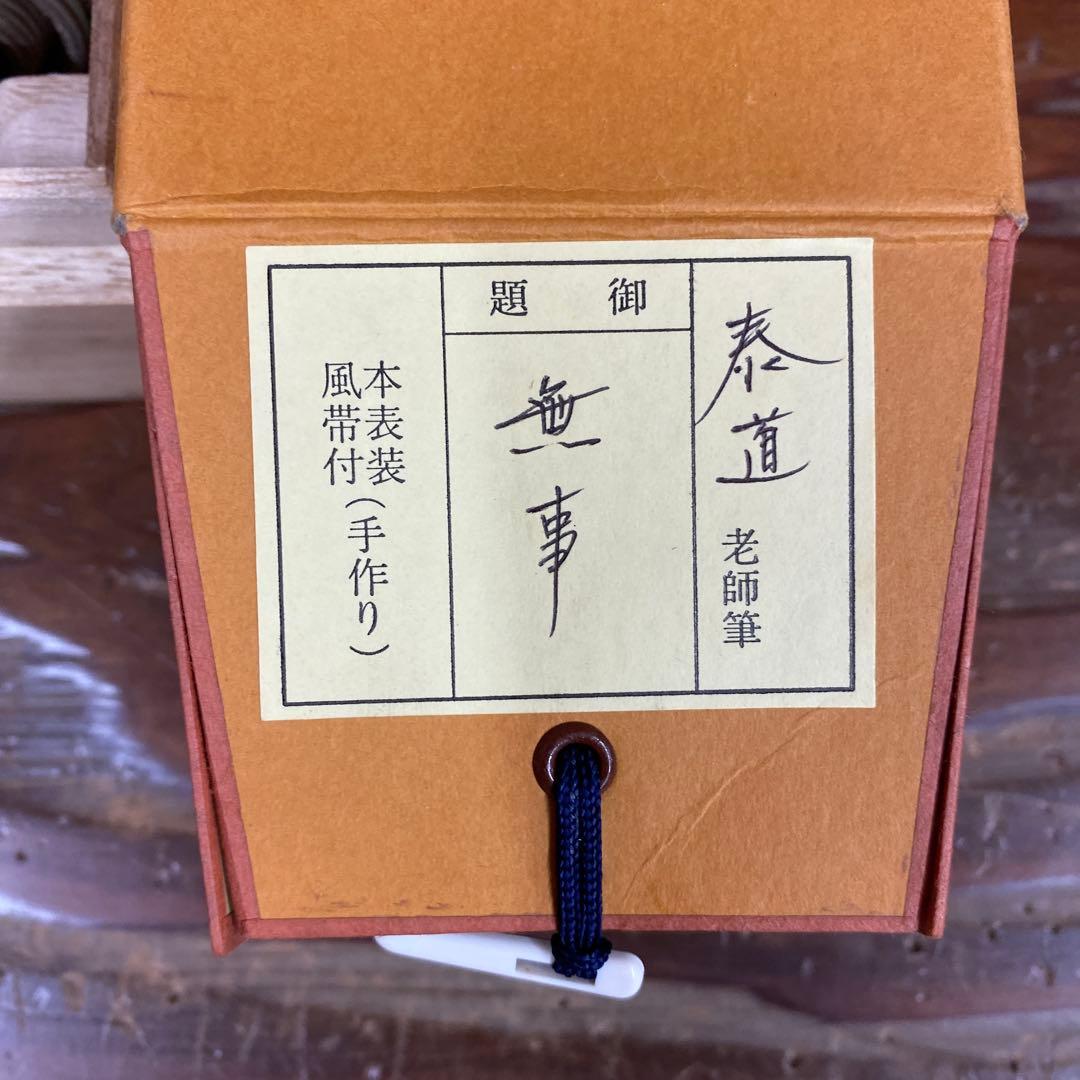 泰道 老師筆
御題
無事
本表装
風帯付(手作り)